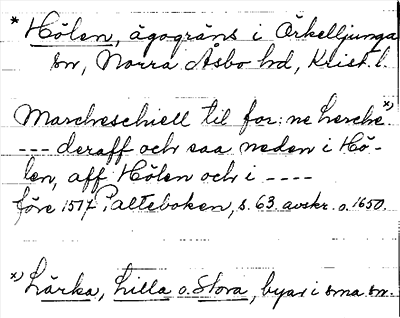 * Hölen, ägogräns i Örkelljunga
sn, Norra Åsbo hd, Krist. l.
Marcheschiell til for: ne Lerche x)
--- deraff och saa neden i Hö-
len, aff Hölen och i ----
före 1517 Palteboken, s. 63. avskr. o. 1650.
x) Lärka, Lilla o. Stora, byar i sma sn.